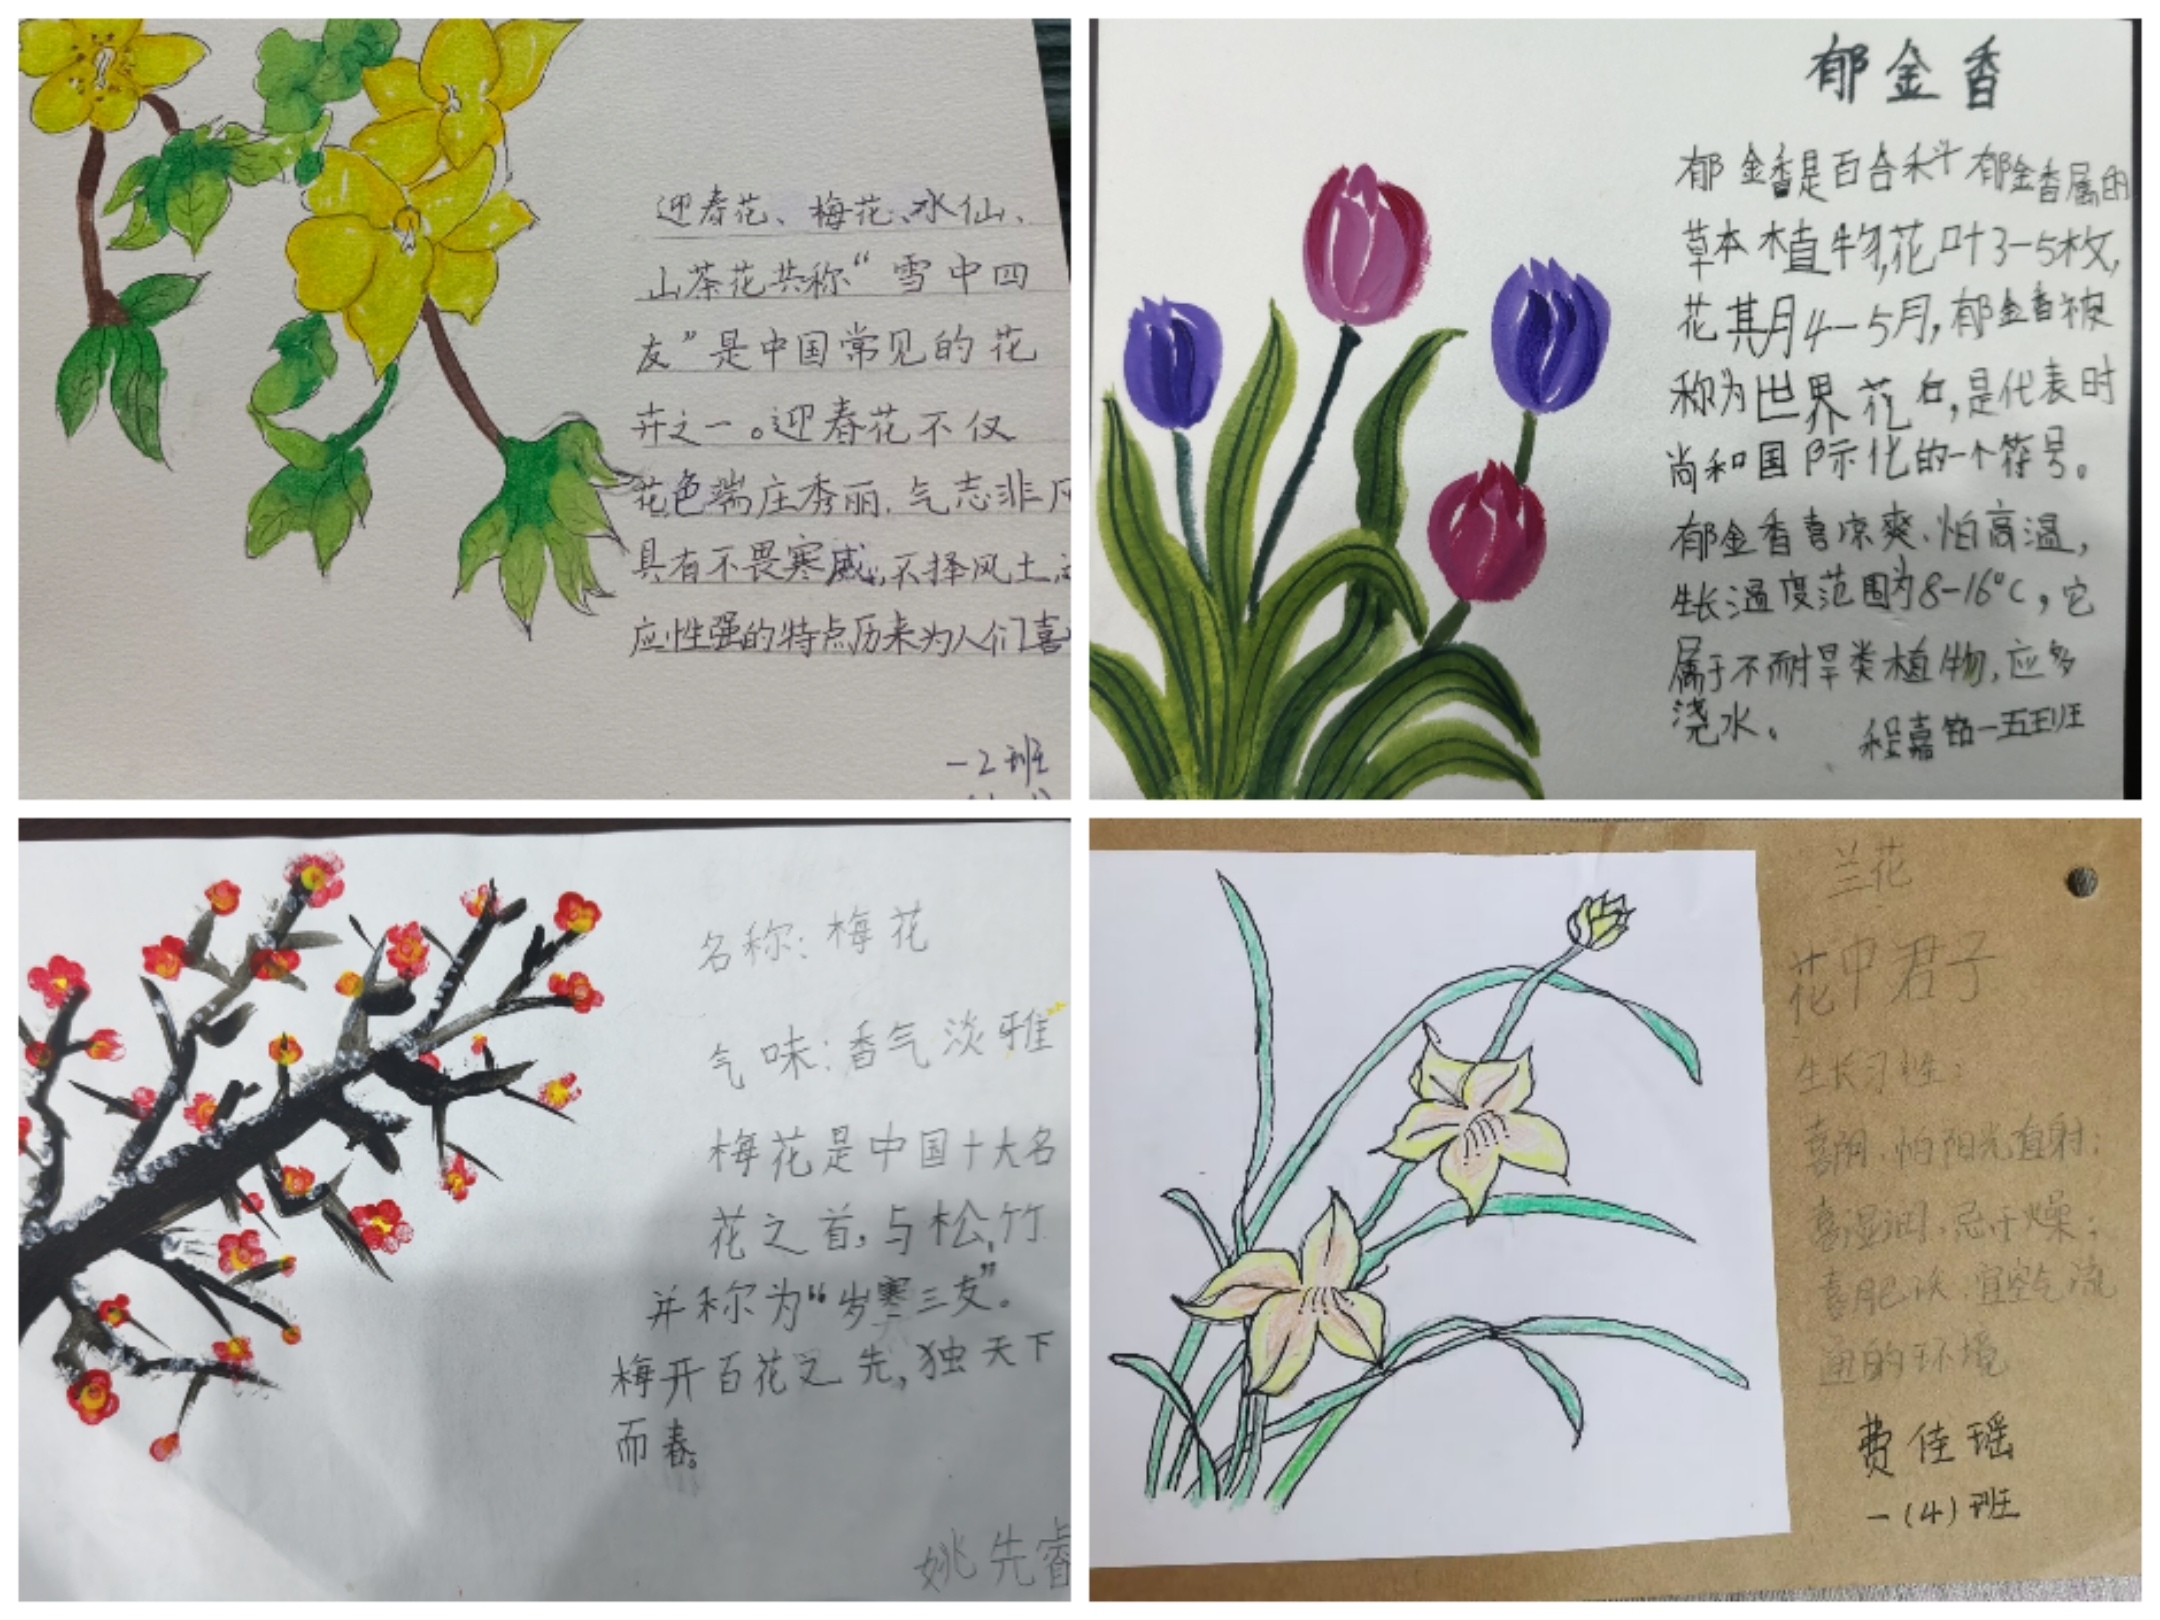 迎春花、梅花、水仙、
山茶花共称“雪中四
友”是中国常见的花
卉之一。迎春花不仅
花色端庄秀丽,气志非凡
具有不畏寒威,不择风土,
应性强的特点历来为人们喜
一2班
郁金香
郁金香是百合科郁金香属的
草本植物,花叶3-5枚,
花其月4-5月,郁金香被
称为世界花右,是代表时
尚和国际化的一个符号。
郁金香喜凉爽、怕高温,
生长温度范围为8-16°C,它
属于不耐旱类植物,应多
浇水。
程嘉铭一五班
名称:梅花
气味:香气淡雅
梅花是中国十大名
花之首,与松,竹
并称为“岁寒三友”。
梅开百花之先,独天下
而春。
姚先睿
兰花
花中君子
生长习性:
喜阴,怕阳光直射;
喜湿润,忌干燥;
喜肥沃,宜空气流
通的环境
费佳瑶
一(4)班